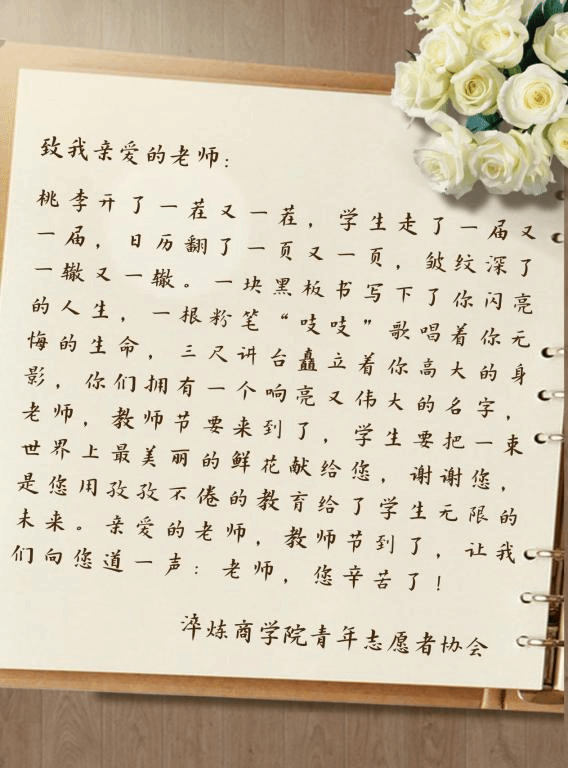 致我亲爱的老师：
桃李开了一茬又一茬，学生走了一届又
一届，日历翻了一页又一页，皱纹深了
一辙又一辙。一块黑板书写下了你闪亮
的人生，一根粉笔“吱吱”歌唱着你无
悔的生命，三尺讲台矗立着你高大的身
影，你们拥有一个响亮又伟大的名字，
老师，教师节要来到了，学生要把一束
世界上最美丽的鲜花献给您，谢谢您，
是您用孜孜不倦的教育给了学生无限的
未来。亲爱的老师，教师节到了，让我
们向您道一声：老师，您辛苦了！
淬炼商学院青年志愿者协会